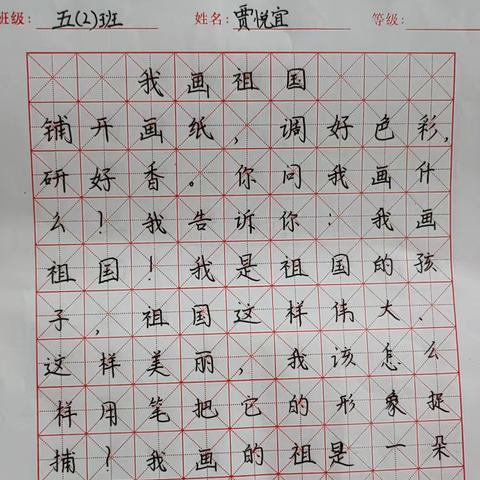 班级：五(2)班 姓名：贾悦宜 等级：
我画祖国
铺开画纸，调好色彩，
研好香。你问我画什
么！我告诉你：我画
祖国！我是祖国的孩
子，祖国这样伟大、
这样美丽，我该怎么
样用笔把它的形象捉
捕！我画的祖是一朵